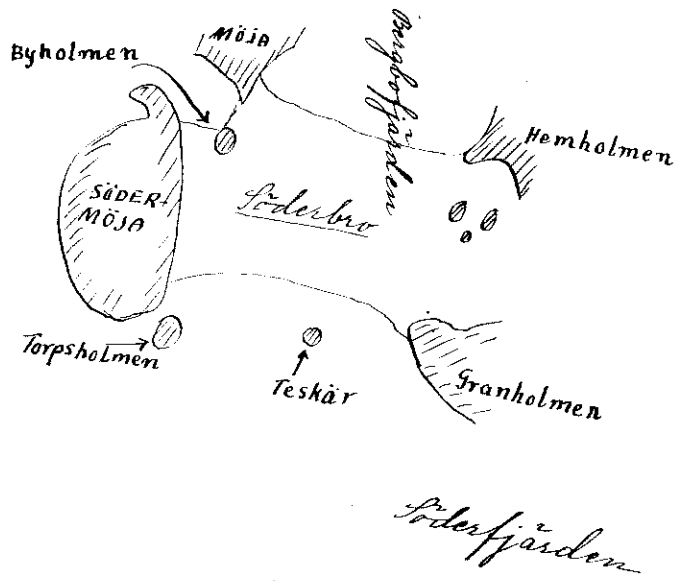 MÖJA
Byholmen
Bergbofjärden
Hemholmen
SÖDER-
MÖJA
Söderbro
Torpsholmen
Teskär
Granholmen
Söderfjärden